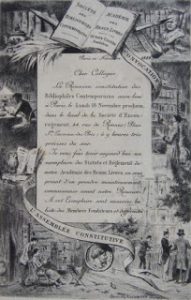 SOCIÉTÉ
DES
BIBLIOPHILES
CONTEMPORAINS
ACADÉMIE
DES
BEAUX LIVRES
CONVOCATION
Paris
Cher Collègue
La Réunion constitutive des
Bibliophiles Contemporains aura lieu
à Paris le lundi 18 Novembre prochain,
dans le local de la Société d'Encou-
ragement, 44 rue de Rennes, Place
St Germain des Prés, à
précises du soir.
Je vous fais tenir aujourd'hui un
exemplaire des Statuts et Règlement de
notre Académie des Beaux Livres, en vous
priant d'en prendre
connaissance avant notre Réunion.
la
liste des Membres Fondateurs et
L'ASSEMBLÉE CONSTITUTIVE